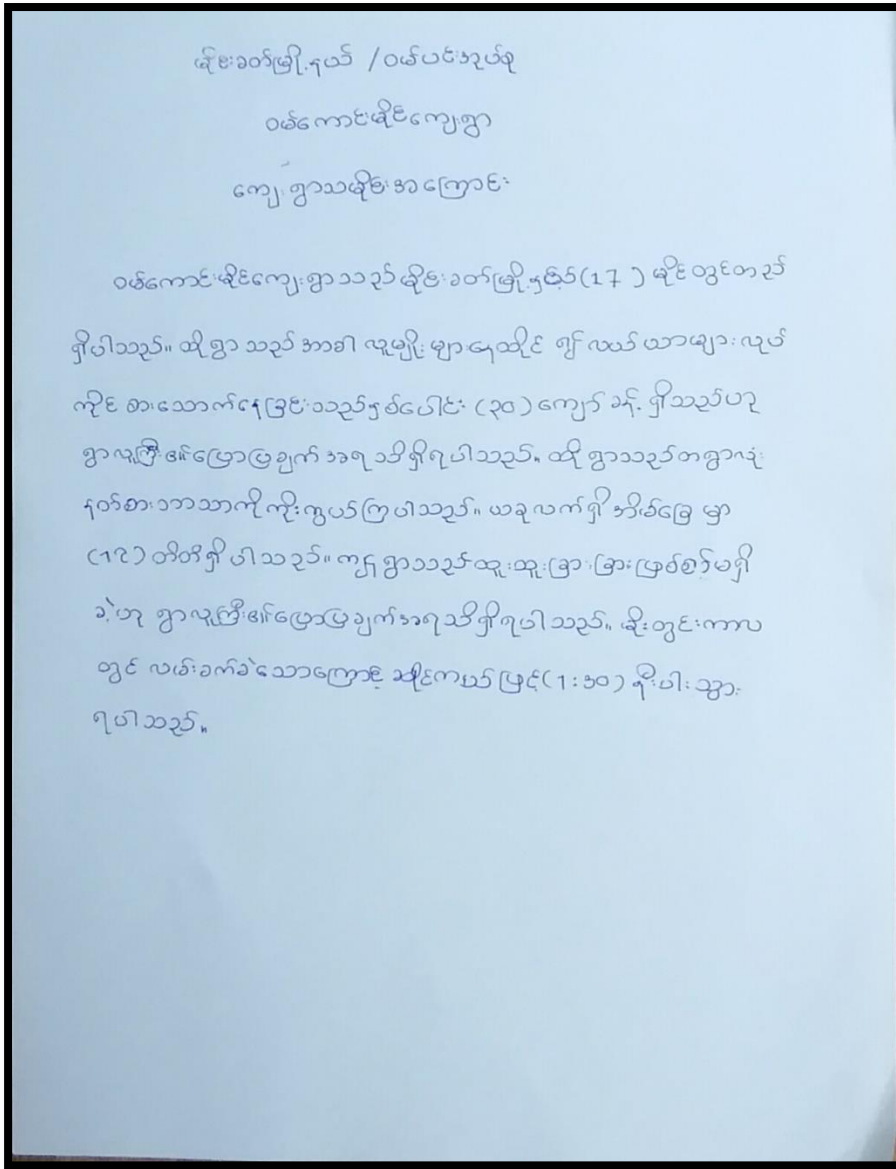 မိုင်းခတ်မြို့နယ် / ဝမ်ပင်းအုပ်စု
ဝမ်ကောင်းမိုင်ကျေးရွာ
ကျေးရွာသမိုင်းအကြောင်း
ဝမ်ကောင်းမိုင်ကျေးရွာသည် မိုင်းခတ်မြို့နှင့်(17) မိုင်တွင်တည်
ရှိပါသည်။ ထိုရွာသည်အာခါလူမျိုးများနေထိုင်၍ လယ်ယာများလုပ်
ကိုင်စားသောက်နေခြင်းသည်နှစ်ပေါင်း (၃၀) ကျော်ခန့်ရှိသည်ဟု
ရွာလူကြီး၏ပြောပြချက်အရသိရှိရပါသည်။ ထိုရွာသည်တရွာလုံး
နတ်စားဘာသာကိုကိုးကွယ်ကြပါသည်။ ယခုလက်ရှိအိမ်ခြေမှာ
(၁၇) တိတိရှိပါသည်။ ဤရွာသည်ထူးထူးခြားခြားဖြစ်စဉ်မရှိ
ခဲ့ဟု ရွာလူကြီး၏ပြောပြချက်အရသိရှိရပါသည်။ မိုးတွင်းကာလ
တွင် လမ်းခက်ခဲသောကြောင့် ဆိုင်ကယ်ဖြင့်(1:30) နီးပါးသွား
ရပါသည်။